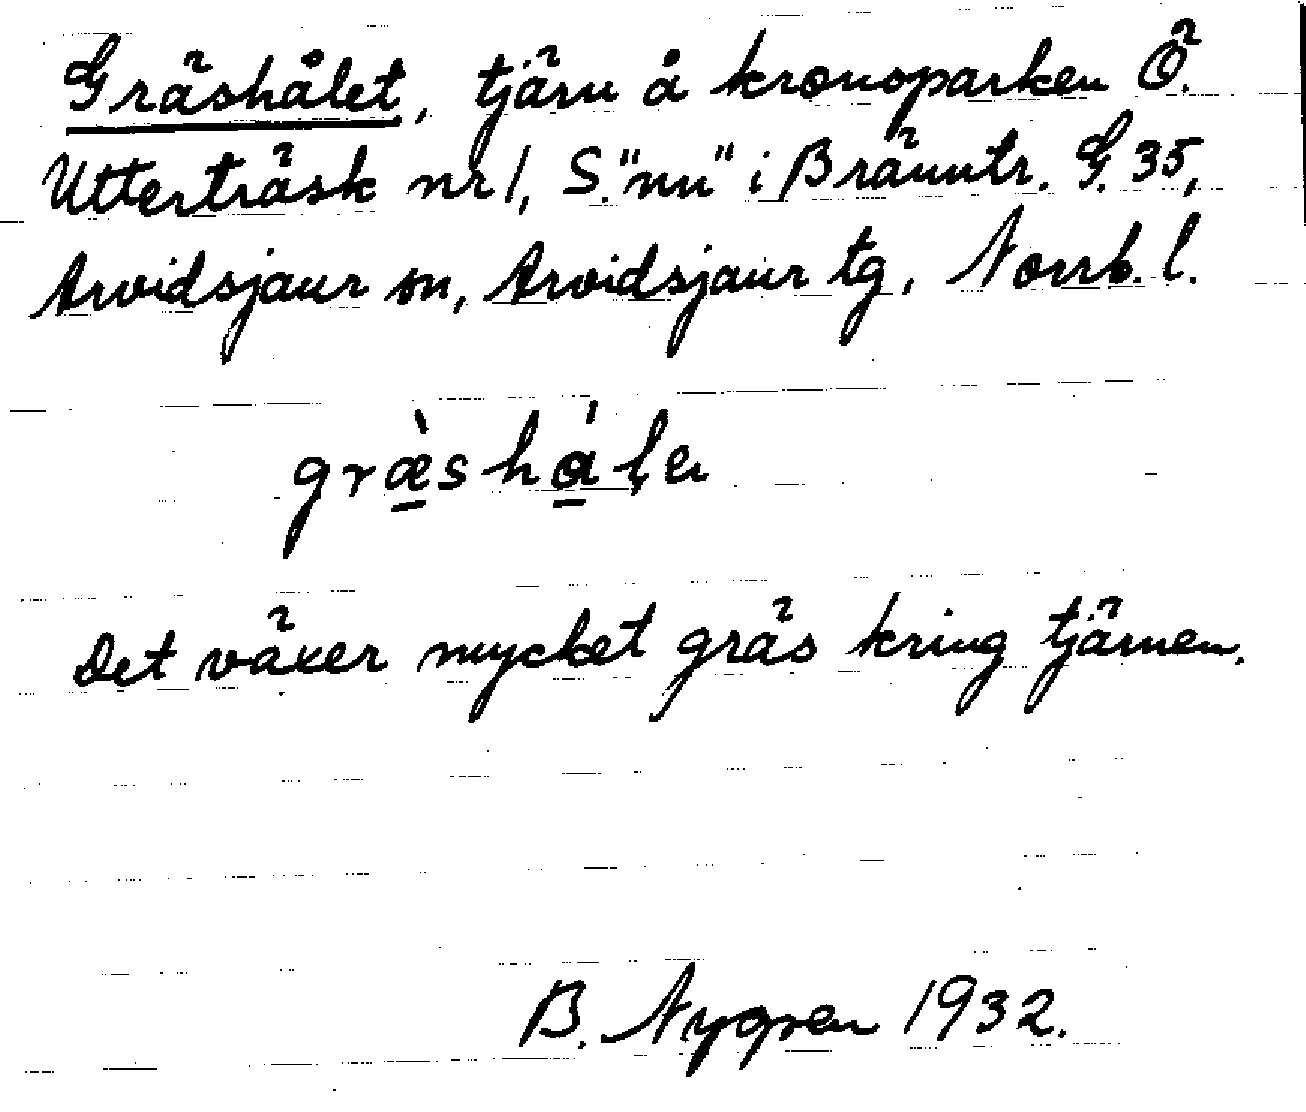 Gräshålet, tjärn å kronoparken Ö.
Utterträsk nr 1, S. "nn" i Bränntr. G. 35,
Arvidsjaur sn, Arvidsjaur tg, Norrb. l.
græ̀shál̥e
Det växer mycket gräs kring tjärnen.
B. Nygren 1932.